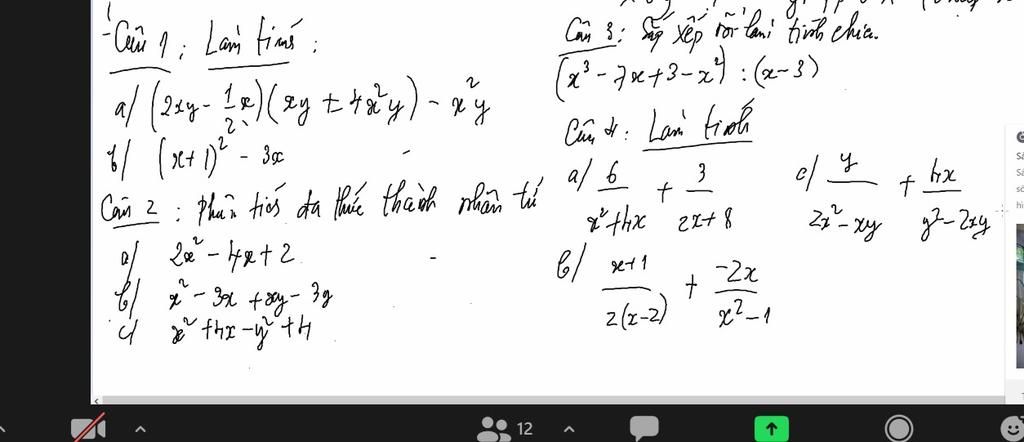 Câu 1: Làm tính:
a/ (2xy - 1/2 x)(xy + 4x²y) - x²y
b/ (x+1)² - 3x
Câu 2: Phân tích đa thức thành nhân tử
a/ 2x² - 4x + 2
b/ x² - 3x + xy - 3y
c/ x² + 4x - y² + 4
Câu 3: Sắp xếp rồi làm tính chia.
(x³ - 7x + 3 - x²) : (x - 3)
Câu 4: Làm tính
a/ 6/(x² + 4x) + 3/(2x + 8)
c/ y/(2x² - xy) + 4x/(y² - 2xy)
b/ (x+1)/(2(x-2)) + (-2x)/(x² - 1)
12